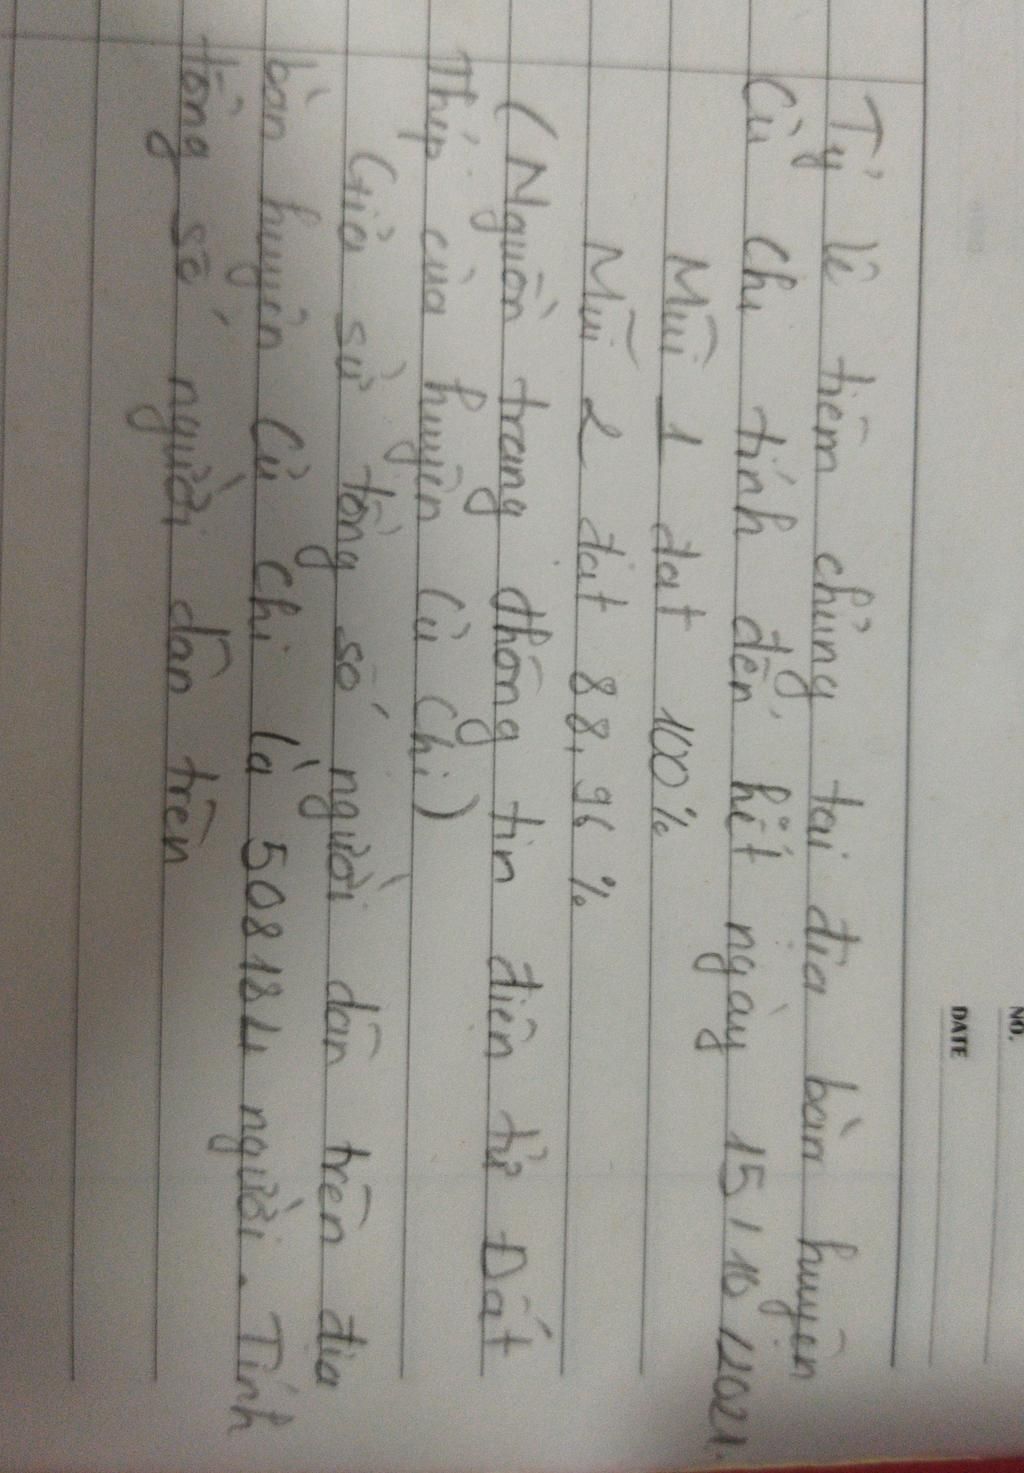 NO.
DATE
Tỷ lê tiêm chủng tai đia bàn huyên
Củ Chi tính đến hết ngày 15/10/2021.
Mũi 1 đat 100%
Mũi 2 đat 88,96%
(Nguồn trang thông tin điên tử Đất
Thép của huyên Củ Chi)
Giả sử tổng số người dân trên đia
bàn huyên Củ Chi là 508184 người. Tính
tổng số người dân trên